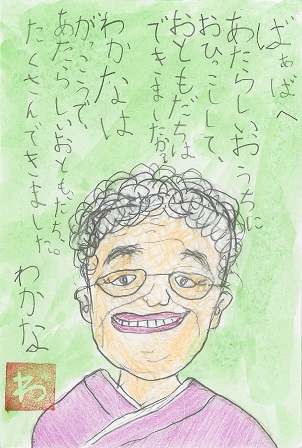 ばぁばへ
あたらしいおうちに
おひっこしして、
おともだちは
できましたか?
わかなは
がっこうで、
あたらしいおともだちが
たくさんできました。
わかな
わ